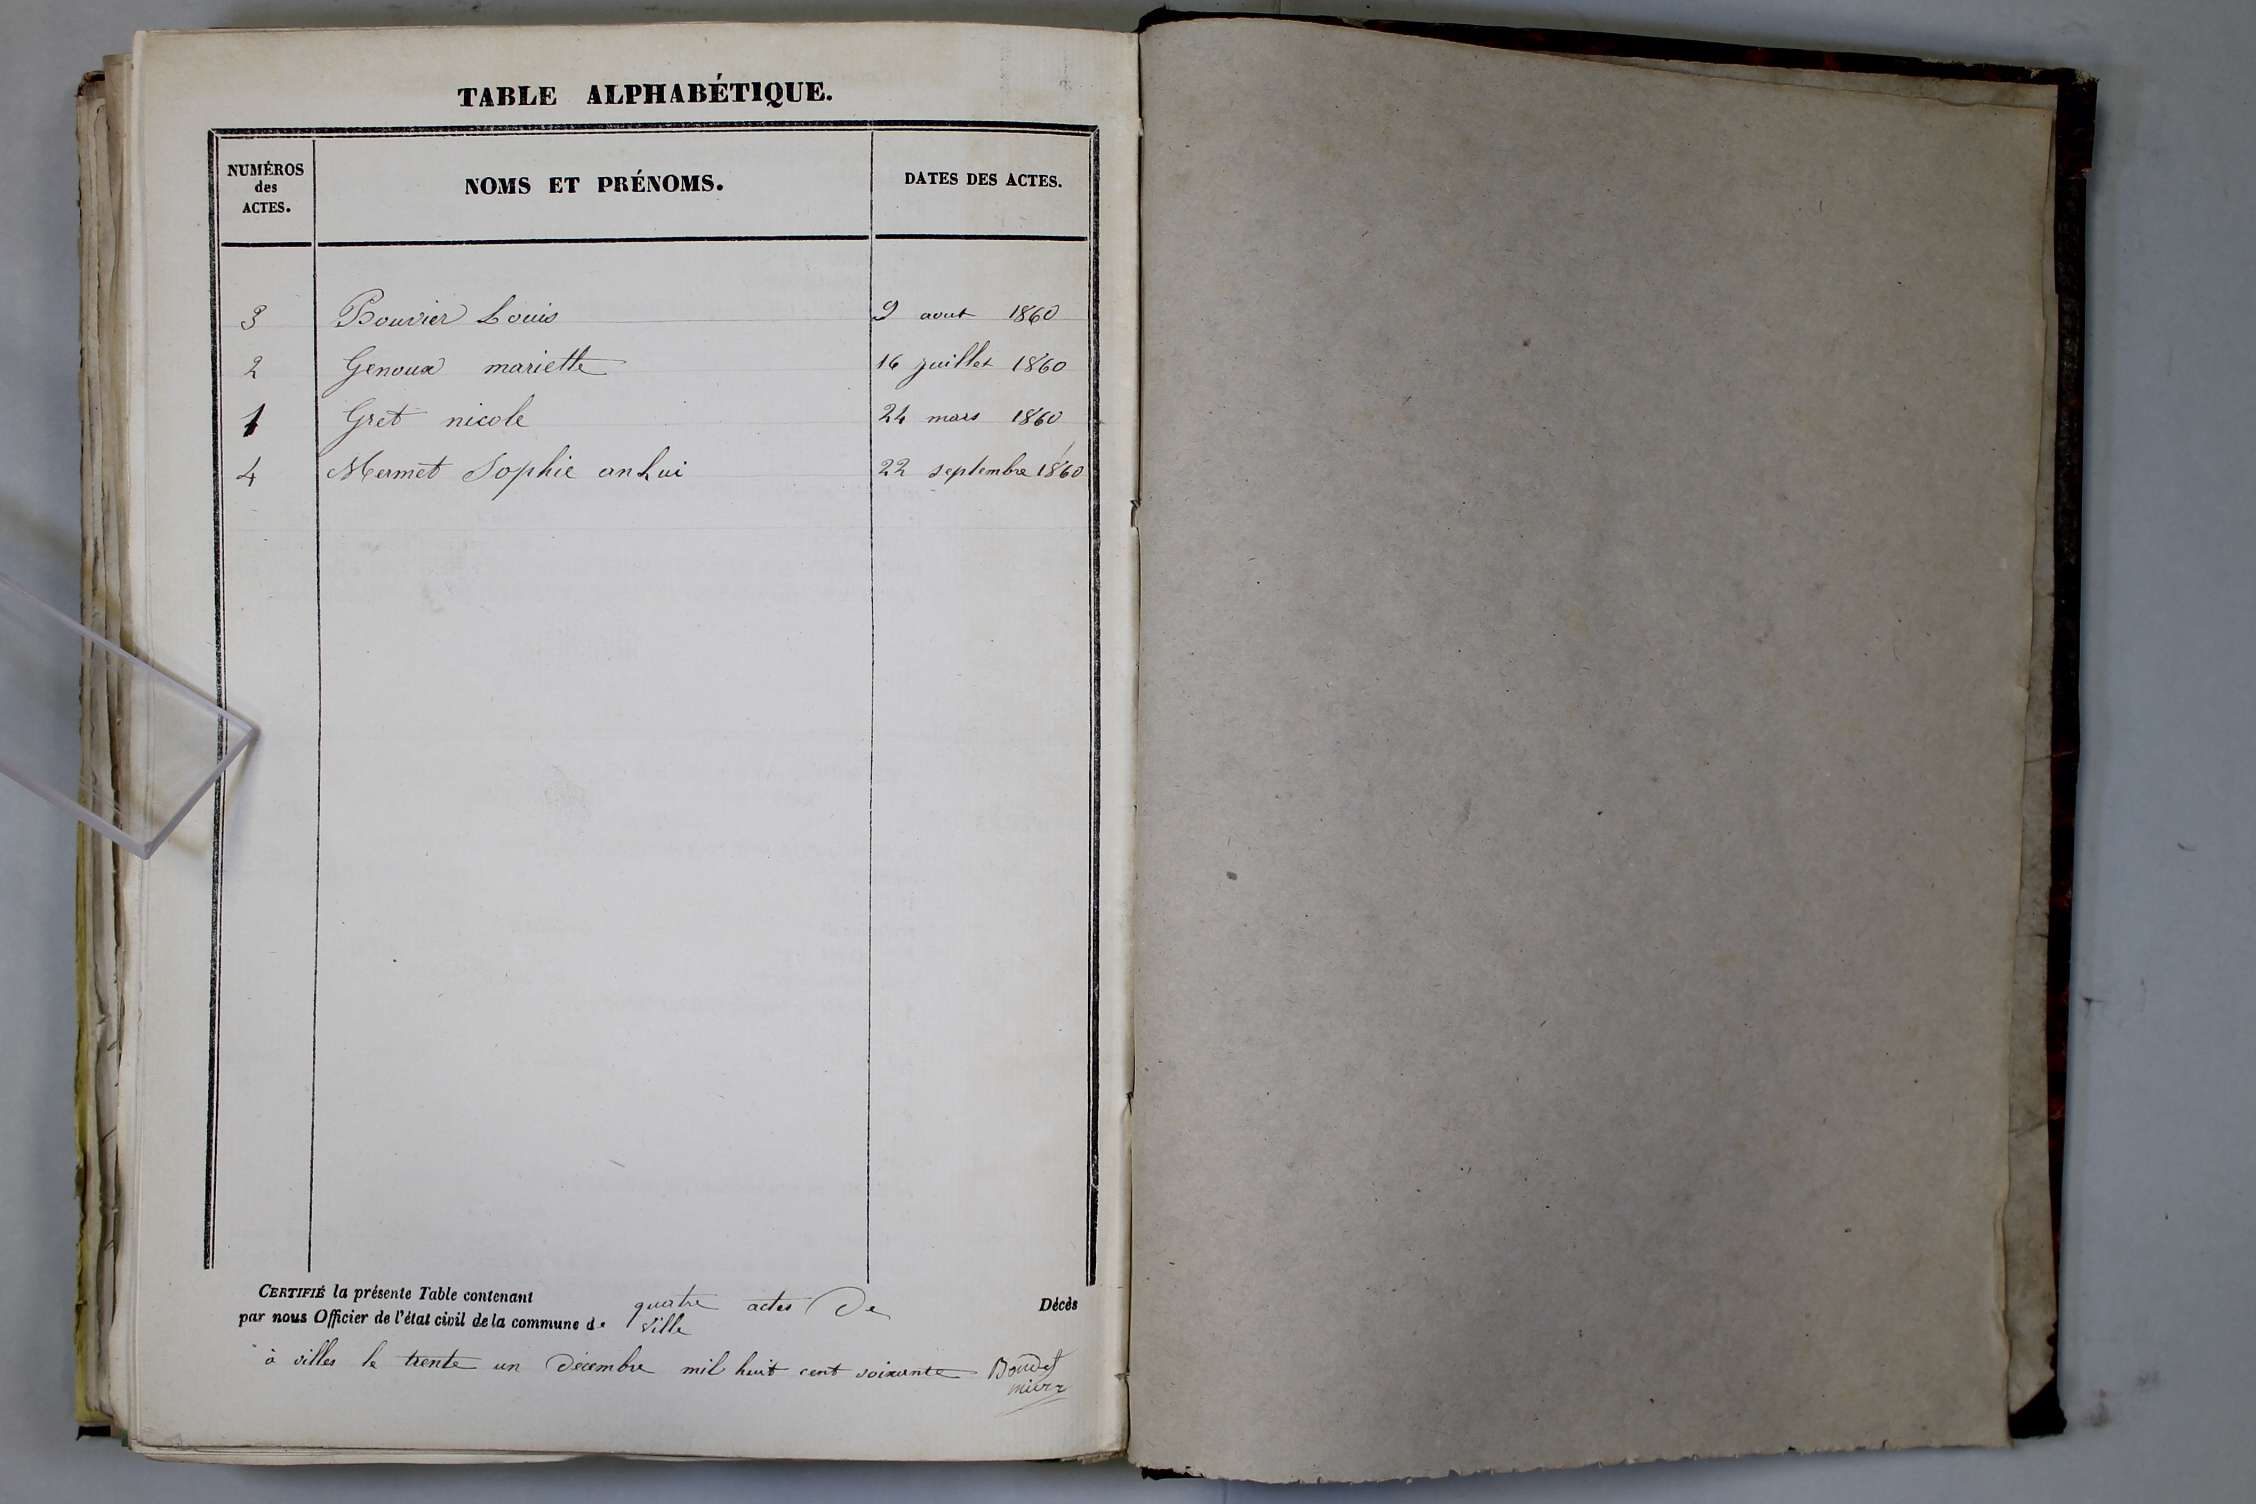 TABLE ALPHABÉTIQUE.
NUMÉROS des ACTES. NOMS ET PRÉNOMS. DATES DES ACTES.
3 Bouvier Louis 9 aout 1860
2 Genoux mariette 16 juillet 1860
1 Gret nicole 24 mars 1860
4 Mermet Sophie anhui 22 septembre 1860
CERTIFIÉ la présente Table contenant quatre actes De Décès
par nous Officier de l'état civil de la commune de Ville
à villes le trente un Décembre mil huit cent soixante Boudet